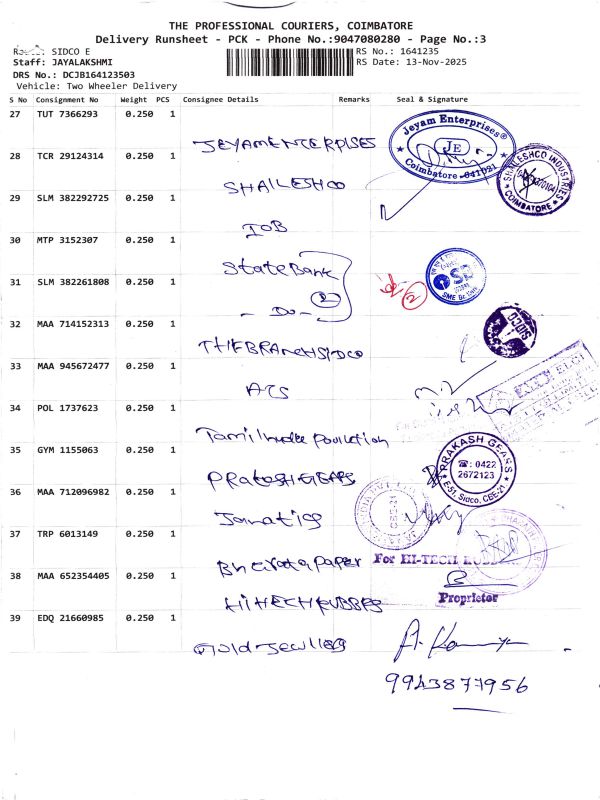 THE PROFESSIONAL COURIERS, COIMBATORE
Delivery Runsheet - PCK - Phone No.:9047080280 - Page No.:3
SIDCO E RS No.: 1641235
Staff: JAYALAKSHMI RS Date: 13-Nov-2025
DRS No.: DCJB164123503
Vehicle: Two Wheeler Delivery
S No Consignment No Weight PCS Consignee Details Remarks Seal & Signature
27 TUT 7366293 0.250 1
JEYAM ENTERPRISES
Jeyam Enterprises®
JE
Coimbatore - 641021
28 TCR 29124314 0.250 1
SHAILESHCO
SHAILESHCO INDUSTRIES
COIMBATORE
29 SLM 382292725 0.250 1
IOB
30 MTP 3152307 0.250 1
State Bank
31 SLM 382261808 0.250 1
2
- Do -
2
32 MAA 714152313 0.250 1
THE BRANCH SIDCO
SIDCO
33 MAA 945672477 0.250 1
ACS
34 POL 1737623 0.250 1
Tamilnadu Pollution
35 GYM 1155063 0.250 1
PRAKASH GEARS
PRAKASH GEARS
☎: 0422
2672123
E-51, Sidco, CBE-21
36 MAA 712096982 0.250 1
37 TRP 6013149 0.250 1
Bharata paper
For HI-TECH
38 MAA 652354405 0.250 1
HITECH RUBBERS
Proprietor
39 EDQ 21660985 0.250 1
Gold Jewllery
9943877956